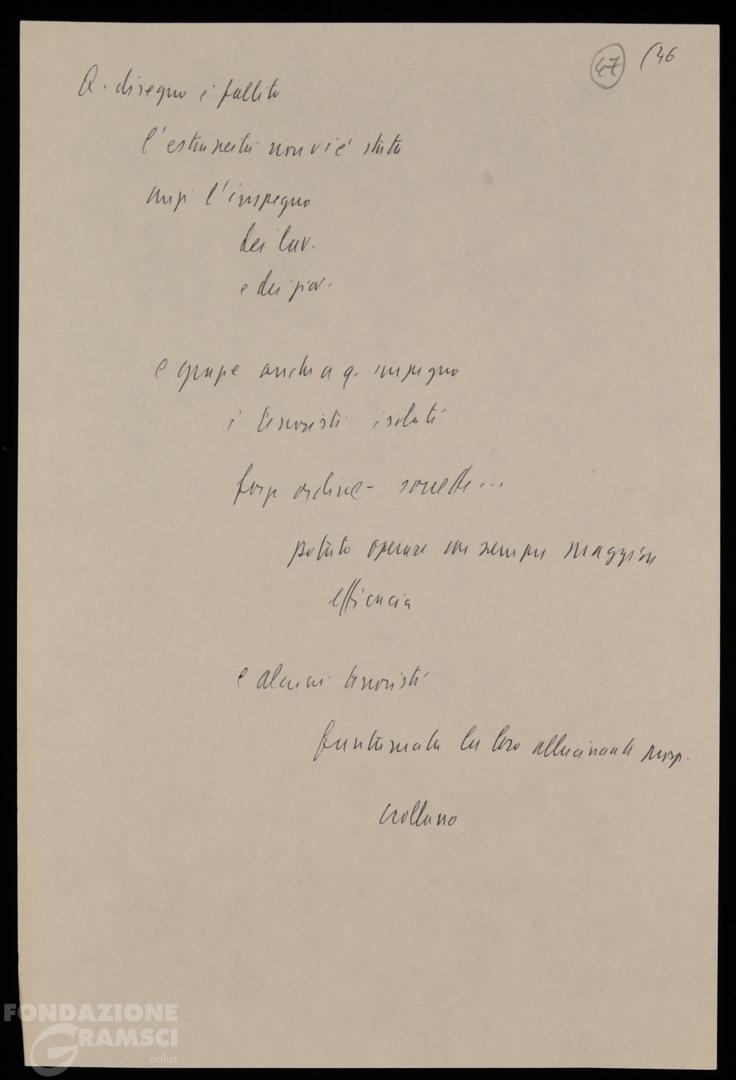 47 (46
Q. disegno è fallito
l'estraneità non vi è stata
anzi l'impegno
dei lav.
e dei giov.
e grazie anche a q. impegno
i terroristi isolati
forze ordine - sorrette...
potuto operare con sempre maggiore
efficacia
e alcuni terroristi
frantumata la loro allucinante prosp.
crollano
FONDAZIONE
GRAMSCI
onlus